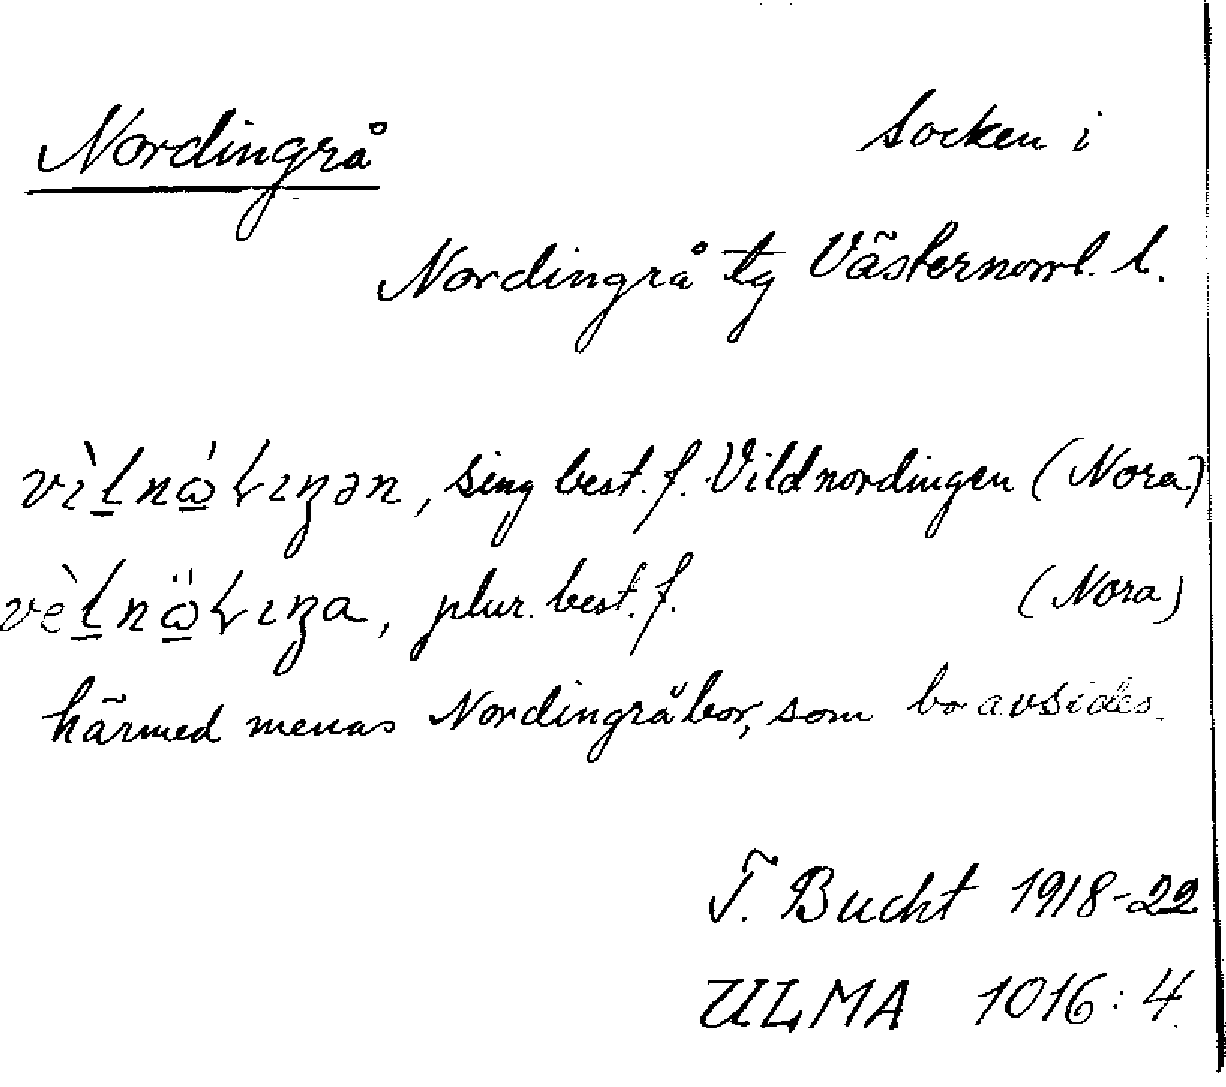 Nordingrå Socken i
Nordingrå tg Västernorrl. l.
sing best. f. Vildnordingen (Nora)
plur. best. f. (Nora)
härmed menas Nordingråbor, som bo avsides.
T. Bucht 1918-22
ULMA 1016:4.